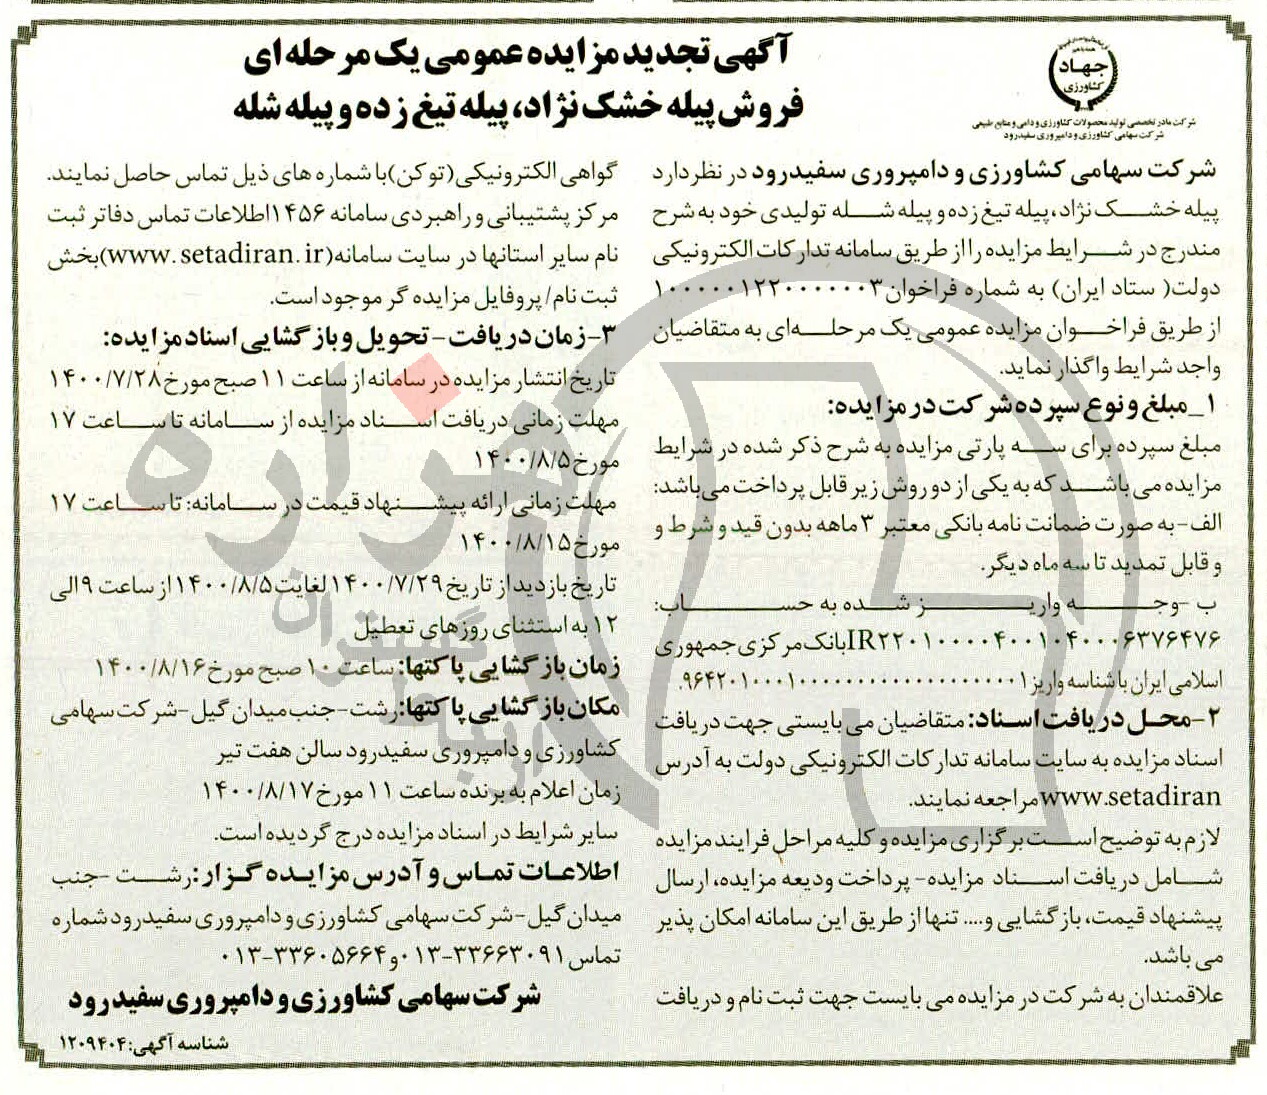 آگهی تجدید مزایده عمومی یک مرحله‌ای
فروش پیله خشک نژاد، پیله تیغ زده و پیله شله
جهاد
کشاورزی
شرکت مادر تخصصی تولید محصولات کشاورزی و دامی و منابع طبیعی
شرکت سهامی کشاورزی و دامپروری سفیدرود
شرکت سهامی کشاورزی و دامپروری سفیدرود در نظر دارد
پیله خشک نژاد، پیله تیغ زده و پیله شله تولیدی خود به شرح
مندرج در شرایط مزایده را از طریق سامانه تدارکات الکترونیکی
دولت( ستاد ایران) به شماره فراخوان ۱۰۰۰۰۰۱۲۲۰۰۰۰۰۰۳
از طریق فراخوان مزایده عمومی یک مرحله‌ای به متقاضیان
واجد شرایط واگذار نماید.
۱_مبلغ و نوع سپرده شرکت در مزایده:
مبلغ سپرده برای سه پارتی مزایده به شرح ذکر شده در شرایط
مزایده می باشد که به یکی از دو روش زیر قابل پرداخت می‌باشد:
الف-به صورت ضمانت نامه بانکی معتبر ۳ ماهه بدون قید و شرط و
و قابل تمدید تا سه ماه دیگر.
ب -وجه واریز شده به حساب:
IR۲۲۰۱۰۰۰۰۴۰۰۱۰۴۰۰۰۶۳۷۶۴۷۶ بانک مرکزی جمهوری
اسلامی ایران با شناسه واریز
۲-محل دریافت اسناد: متقاضیان می بایستی جهت دریافت
اسناد مزایده به سایت سامانه تدارکات الکترونیکی دولت به آدرس
www.setadiran مراجعه نمایند.
لازم به توضیح است برگزاری مزایده و کلیه مراحل فرایند مزایده
شامل دریافت اسناد مزایده- پرداخت ودیعه مزایده، ارسال
پیشنهاد قیمت، بازگشایی و.... تنها از طریق این سامانه امکان پذیر
می باشد.
علاقمندان به شرکت در مزایده می بایست جهت ثبت نام و دریافت
گواهی الکترونیکی(توکن)با شماره های ذیل تماس حاصل نمایند.
مرکز پشتیبانی و راهبردی سامانه ۱۴۵۶ اطلاعات تماس دفاتر ثبت
نام سایر استانها در سایت سامانه(www.setadiran.ir)بخش
ثبت نام/پروفایل مزایده گر موجود است.
۳-زمان دریافت - تحویل و بازگشایی اسناد مزایده:
تاریخ انتشار مزایده در سامانه از ساعت ۱۱ صبح مورخ ۱۴۰۰/۷/۲۸
مهلت زمانی دریافت اسناد مزایده از سامانه تا ساعت ۱۷
مورخ ۱۴۰۰/۸/۵
مهلت زمانی ارائه پیشنهاد قیمت در سامانه: تا ساعت ۱۷
مورخ ۱۴۰۰/۸/۱۵
تاریخ بازدید از تاریخ ۱۴۰۰/۷/۲۹ لغایت ۱۴۰۰/۸/۵ از ساعت ۹ الی
۱۲ به استثنای روزهای تعطیل
زمان بازگشایی پاکتها: ساعت ۱۰ صبح مورخ ۱۴۰۰/۸/۱۶
مکان بازگشایی پاکتها: رشت-جنب میدان گیل-شرکت سهامی
کشاورزی و دامپروری سفیدرود سالن هفت تیر
زمان اعلام به برنده ساعت ۱۱ مورخ ۱۴۰۰/۸/۱۷
سایر شرایط در اسناد مزایده درج گردیده است.
اطلاعات تماس و آدرس مزایده گزار: رشت -جنب
میدان گیل-شرکت سهامی کشاورزی و دامپروری سفیدرود شماره
تماس ۰۱۳-۳۳۶۶۳۰۹۱ و ۰۱۳-۳۳۶۰۵۶۶۴
شرکت سهامی کشاورزی و دامپروری سفیدرود
شناسه آگهی: ۱۲۰۹۴۰۴
هزاره